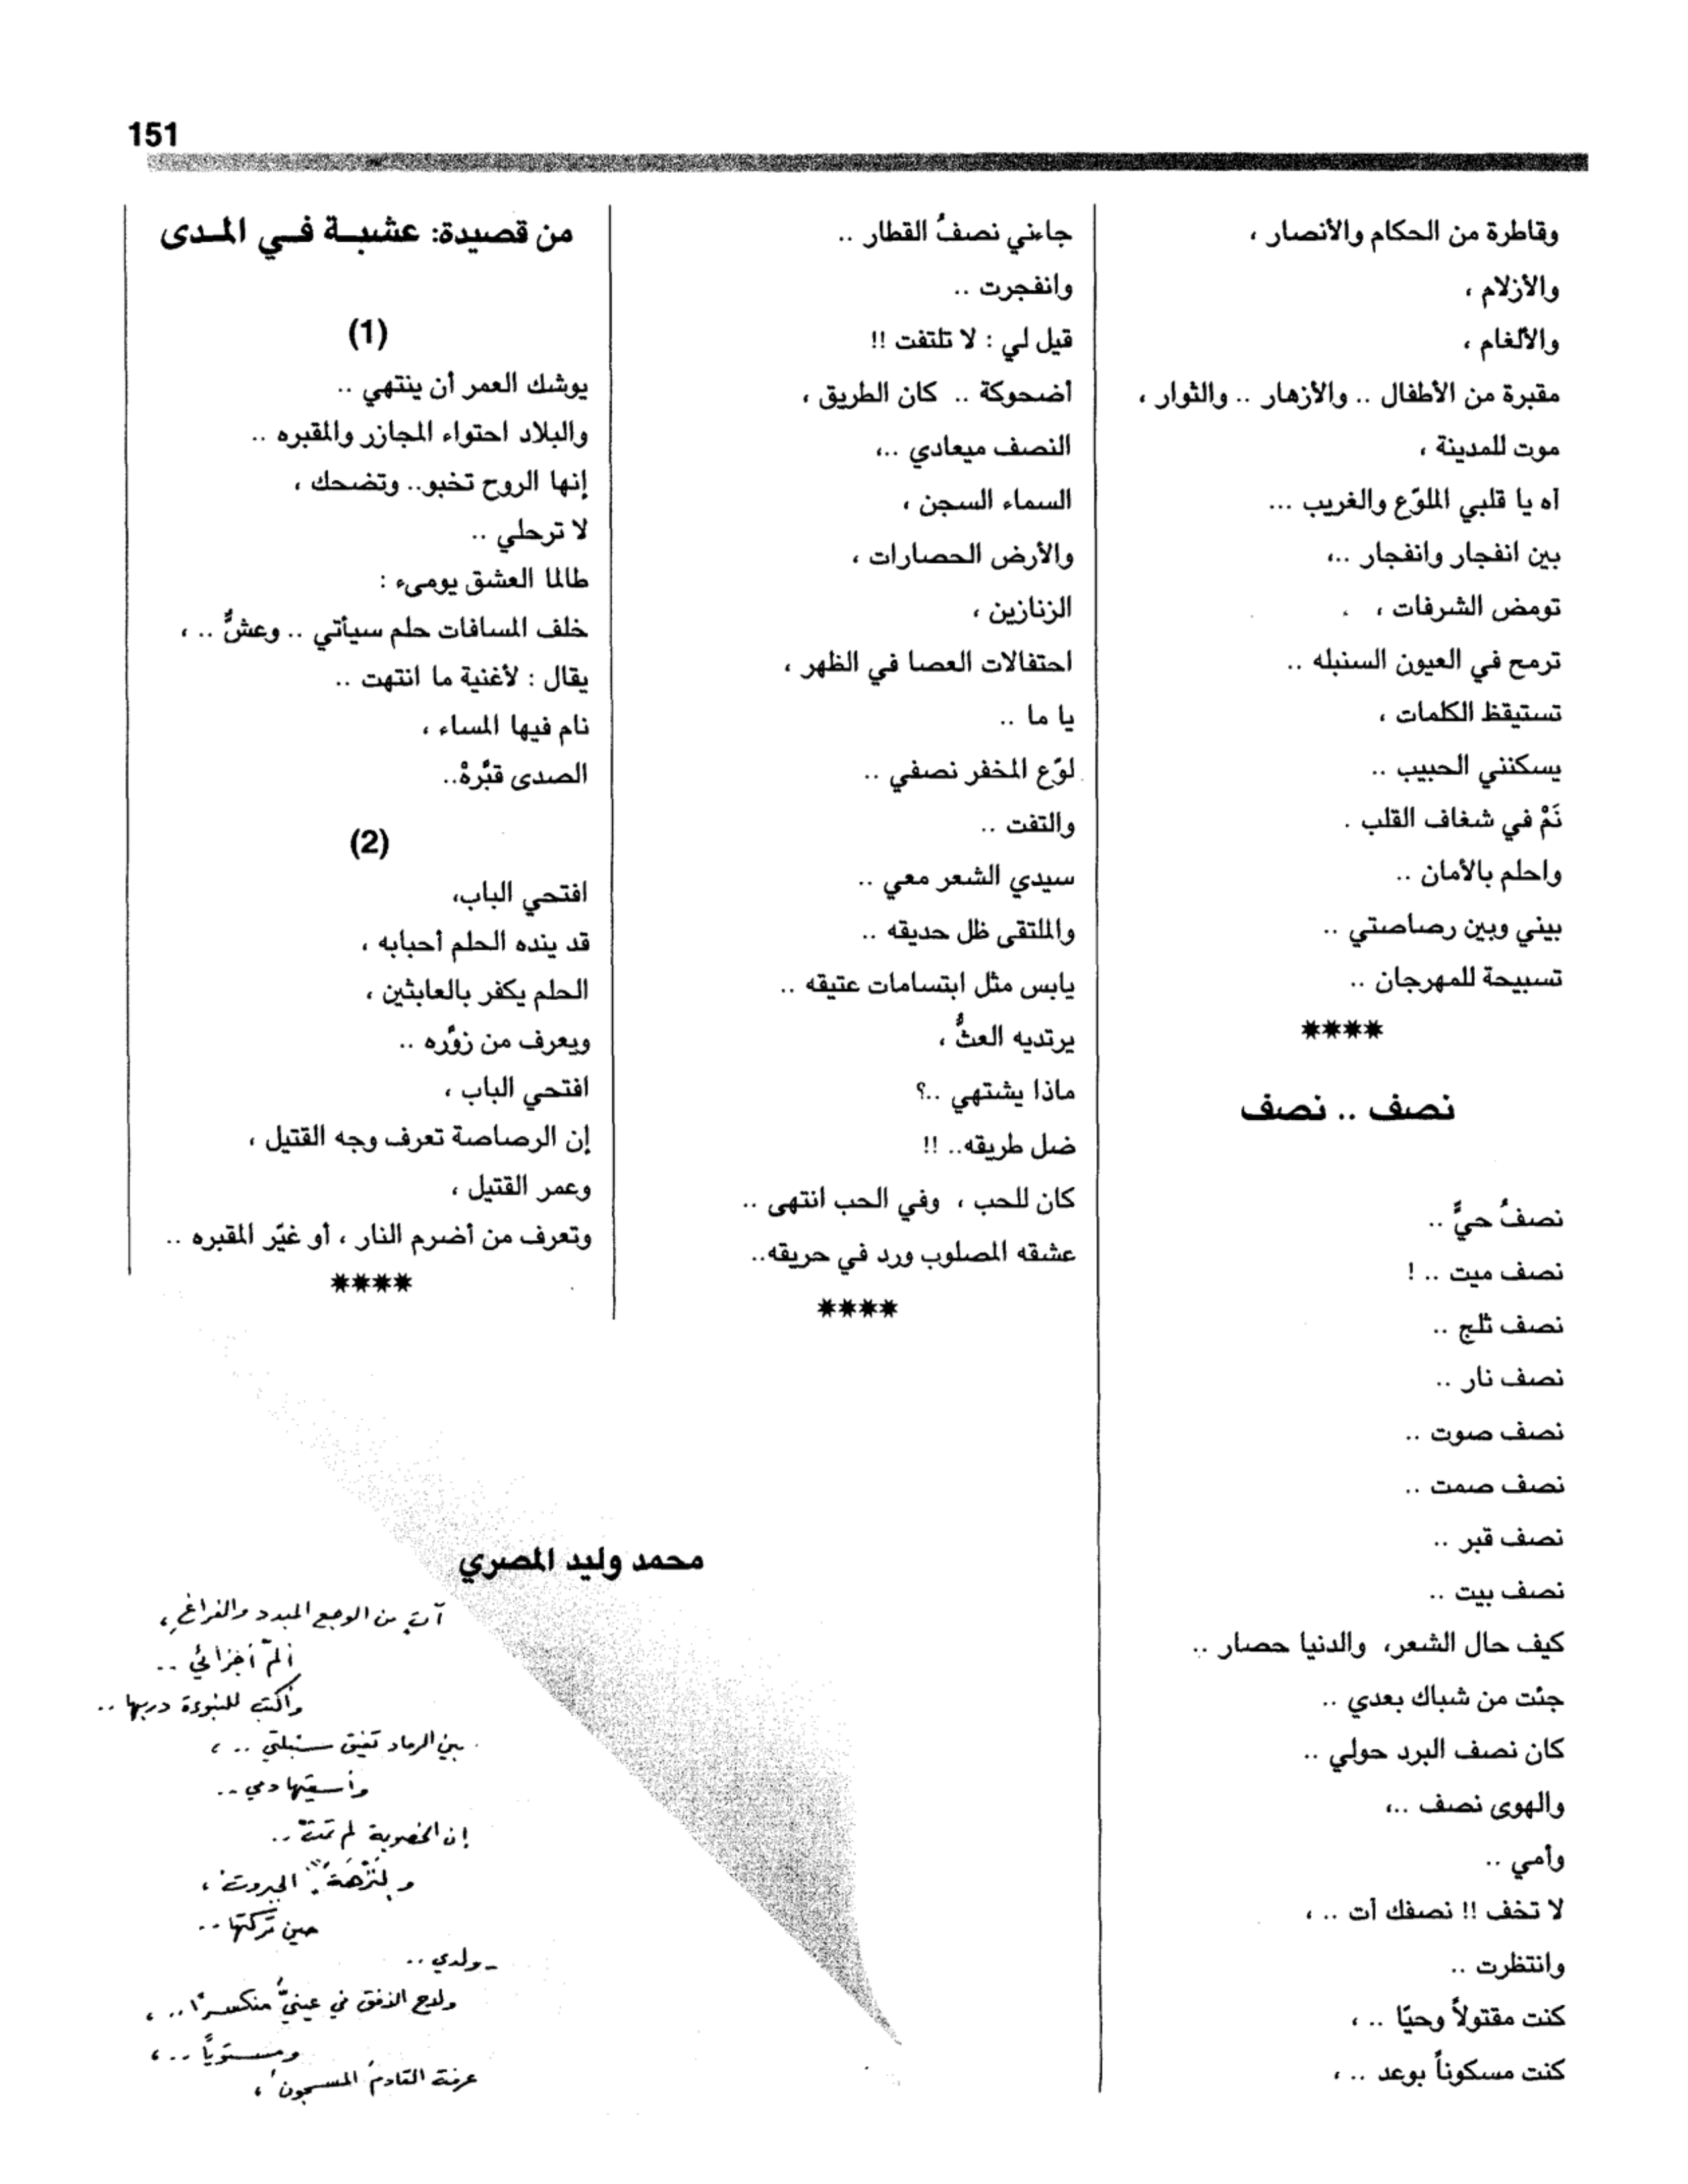 151
وقاطرة من الحكام والأنصار ،
والأزلام ،
والألغام ،
مقبرة من الأطفال .. والأزهار .. والثوار ،
موت للمدينة ،
آه يا قلبي الملوّع والغريب ...
بين انفجار وانفجار ..،
تومض الشرفات ،
ترمح في العيون السنبله ..
تستيقظ الكلمات ،
يسكنني الحبيب ..
نَمْ في شغاف القلب .
واحلم بالأمان ..
بيني وبين رصاصتي ..
تسبيحة للمهرجان ..
****
نصف .. نصف
نصفُ حيٍّ ..
نصف ميت .. !
نصف ثلج ..
نصف نار ..
نصف صوت ..
نصف صمت ..
نصف قبر ..
نصف بيت ..
كيف حال الشعر، والدنيا حصار ..
جئت من شباك بعدي ..
كان نصف البرد حولي ..
والهوى نصف ..،
وأمي ..
لا تخف !! نصفك آت .. ،
وانتظرت ..
كنت مقتولاً وحيّا .. ،
كنت مسكوناً بوعد .. ،
جاءني نصفُ القطار ..
وانفجرت ..
قيل لي : لا تلتفت !!
أضحوكة .. كان الطريق ،
النصف ميعادي ..،
السماء السجن ،
والأرض الحصارات ،
الزنازين ،
احتفالات العصا في الظهر ،
يا ما ..
لوّع المخفر نصفي ..
والتفت ..
سيدي الشعر معي ..
والملتقى ظل حديقه ..
يابس مثل ابتسامات عتيقه ..
يرتديه العثُّ ،
ماذا يشتهي ..؟
ضل طريقه.. !!
كان للحب ، وفي الحب انتهى ..
عشقه المصلوب ورد في حريقه..
****
من قصيدة: عشبـة فـي المـدى
(1)
يوشك العمر أن ينتهي ..
والبلاد احتواء المجازر والمقبره ..
إنها الروح تخبو.. وتضحك ،
لا ترحلي ..
طالما العشق يومىء :
خلف المسافات حلم سيأتي .. وعشٌّ .. ،
يقال : لأغنية ما انتهت ..
نام فيها المساء ،
الصدى قبَّرهْ..
(2)
افتحي الباب،
قد ينده الحلم أحبابه ،
الحلم يكفر بالعابثين ،
ويعرف من زوَّره ..
افتحي الباب ،
إن الرصاصة تعرف وجه القتيل ،
وعمر القتيل ،
وتعرف من أضرم النار ، أو غيّر المقبره ..
****
محمد وليد المصري
آتٍ من الوجع المبدد والفراغِ ،
ألمّ أجزائي ..
وأكتب للنبوءة دربها ..
بين الرماد تفيق سنبلتي .. ،
وأسقيها دمي ..
إن الخصوبة لم تمتْ ..
الجبروت ،
حين تركتها ..
- ولدي ..
ولاح الأفق في عينيَّ منكسراً .. ،
ومستوياً .. ،
عرفتُ القادمَ المسجون ،